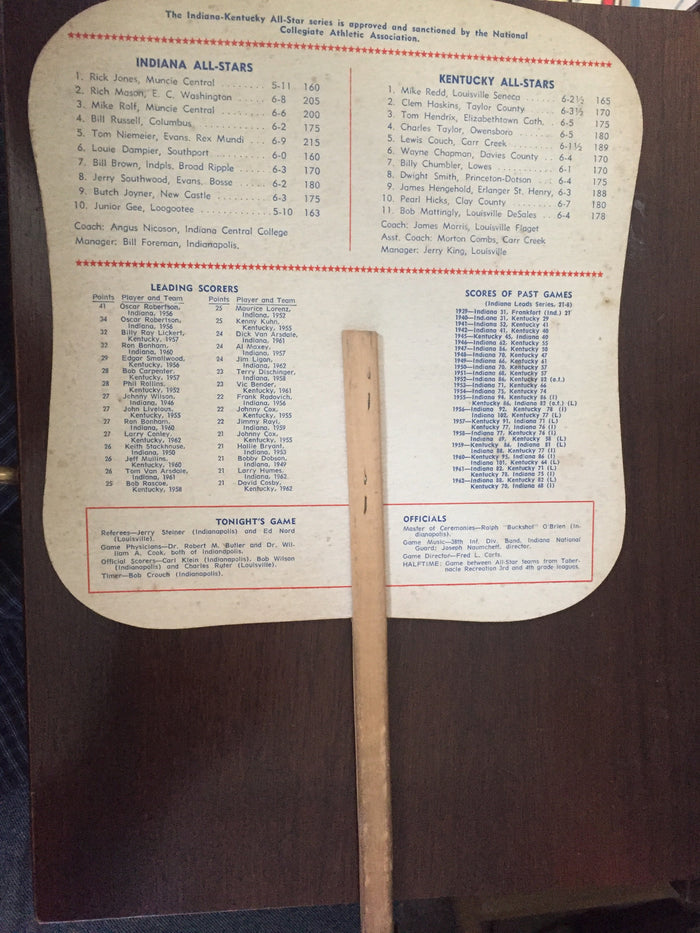 The Indiana-Kentucky All-Star series is approved and sanctioned by the National
Collegiate Athletic Association.
INDIANA ALL-STARS
1. Rick Jones, Muncie Central ........ 5-11 160
2. Rich Mason, E. C. Washington ........ 6-8 205
3. Mike Rolf, Muncie Central ........ 6-6 200
4. Bill Russell, Columbus ........ 6-2 175
5. Tom Niemeier, Evans. Rex Mundi .. 6-9 215
6. Louie Dampier, Southport ........ 6-0 160
7. Bill Brown, Indpls. Broad Ripple .... 6-3 170
8. Jerry Southwood, Evans. Bosse .... 6-2 180
9. Butch Joyner, New Castle ........ 6-3 175
10. Junior Gee, Loogootee ........ 5-10 163
Coach: Angus Nicoson, Indiana Central College
Manager: Bill Foreman, Indianapolis.
KENTUCKY ALL-STARS
1. Mike Redd, Louisville Seneca ...... 6-2½ 165
2. Clem Haskins, Taylor County ...... 6-3½ 170
3. Tom Hendrix, Elizabethtown Cath. .. 6-5 175
4. Charles Taylor, Owensboro ...... 6-5 180
5. Lewis Couch, Carr Creek ...... 6-1½ 189
6. Wayne Chapman, Davies County .. 6-4 170
7. Billy Chumbler, Lowes ...... 6-1 170
8. Dwight Smith, Princeton-Dotson .... 6-4 175
9. James Hengehold, Erlanger St. Henry, 6-3 188
10. Pearl Hicks, Clay County ...... 6-7 180
11. Bob Mattingly, Louisville DeSales .. 6-4 178
Coach: James Morris, Louisville Flaget
Asst. Coach: Morton Combs, Carr Creek
Manager: Jerry King, Louisville
LEADING SCORERS
Points Player and Team
41 Oscar Robertson,
Indiana, 1956
34 Oscar Robertson,
Indiana, 1956
32 Billy Ray Lickert,
Kentucky, 1957
32 Ron Bonham,
Indiana, 1960
29 Edgar Smallwood,
Kentucky, 1956
28 Bob Carpenter,
Kentucky, 1957
28 Phil Rollins,
Kentucky, 1952
27 Johnny Wilson,
Indiana, 1946
27 John Livelous,
Kentucky, 1955
27 Ron Bonham,
Indiana, 1960
27 Larry Conley,
Kentucky, 1962
26 Keith Stackhouse,
Indiana, 1950
26 Jeff Mullins,
Kentucky, 1960
26 Tom Van Arsdale,
Indiana, 1961
25 Bob Roscoe,
Kentucky, 1958
Points Player and Team
25 Maurice Lorenz,
Indiana, 1952
25 Kenny Kuhn,
Kentucky, 1955
24 Dick Van Arsdale,
Indiana, 1961
24 Al Maxey,
Indiana, 1957
24 Jim Ligon,
Indiana, 1962
23 Terry Dischinger,
Indiana, 1958
23 Vic Bender,
Kentucky, 1961
22 Frank Radovich,
Indiana, 1956
22 Johnny Cox,
Kentucky, 1955
22 Jimmy Rayl,
Indiana, 1959
21 Johnny Cox,
Kentucky, 1955
21 Hallie Bryant,
Indiana, 1953
21 Bobby Dobson,
Indiana, 1949
21 Larry Humes,
Indiana, 1962
21 David Cosby,
Kentucky, 1962
SCORES OF PAST GAMES
(Indiana Leads Series, 21-8)
1939—Indiana 31, Frankfort (Ind.) 21
1940—Indiana 31, Kentucky 29
1941—Indiana 52, Kentucky 41
1942—Indiana 41, Kentucky 40
1945—Kentucky 45, Indiana 40
1946—Indiana 62, Kentucky 55
1947—Indiana 86, Kentucky 50
1948—Indiana 70, Kentucky 47
1949—Indiana 66, Kentucky 61
1950—Indiana 70, Kentucky 57
1951—Indiana 68, Kentucky 57
1952—Indiana 86, Kentucky 82 (o.t.)
1953—Indiana 71, Kentucky 66
1954—Indiana 75, Kentucky 74
1955—Indiana 94, Kentucky 86 (I)
Kentucky 86, Indiana 82 (o.t.) (L)
1956—Indiana 92, Kentucky 78 (I)
Indiana 102, Kentucky 77 (L)
1957—Kentucky 91, Indiana 71 (L)
Kentucky 77, Indiana 76 (I)
1958—Indiana 77, Kentucky 76 (I)
Indiana 69, Kentucky 58 (L)
1959—Kentucky 86, Indiana 81 (L)
Indiana 88, Kentucky 77 (I)
1960—Kentucky 95, Indiana 86 (I)
Indiana 101, Kentucky 64 (L)
1961—Indiana 82, Kentucky 71 (L)
Kentucky 78, Indiana 75 (I)
1962—Indiana 88, Kentucky 82 (L)
Kentucky 70, Indiana 68 (I)
TONIGHT'S GAME
Referees—Jerry Steiner (Indianapolis) and Ed Nord
(Louisville).
Game Physicians—Dr. Robert M. Butler and Dr. Wil-
liam A. Cook, both of Indianapolis.
Official Scorers—Carl Klein (Indianapolis). Bob Wilson
(Indianapolis) and Charles Ruter (Louisville).
Timer—Bob Crouch (Indianapolis).
OFFICIALS
Master of Ceremonies—Ralph "Buckshot" O'Brien (In-
dianapolis).
Game Music—38th Inf. Div. Band, Indiana National
Guard; Joseph Naumcheff, director.
Game Director—Fred L. Corts.
HALFTIME: Game between All-Star teams from Taber-
nacle Recreation 3rd and 4th grade leagues.